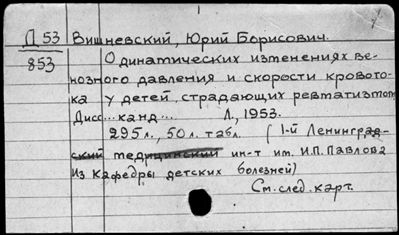 Д 53 Вишневский, Юрий Борисович.
853 О динамических изменениях ве-
нозного давления и скорости кровото-
ка у детей, страдающих ревматизмом
Дисс...канд.... Л., 1953.
295 л., 50 л. табл. (1-й Ленинград-
ский медицинский ин-т им. И.П. Павлова
Из Кафедры детских болезней)
См. след. карт.